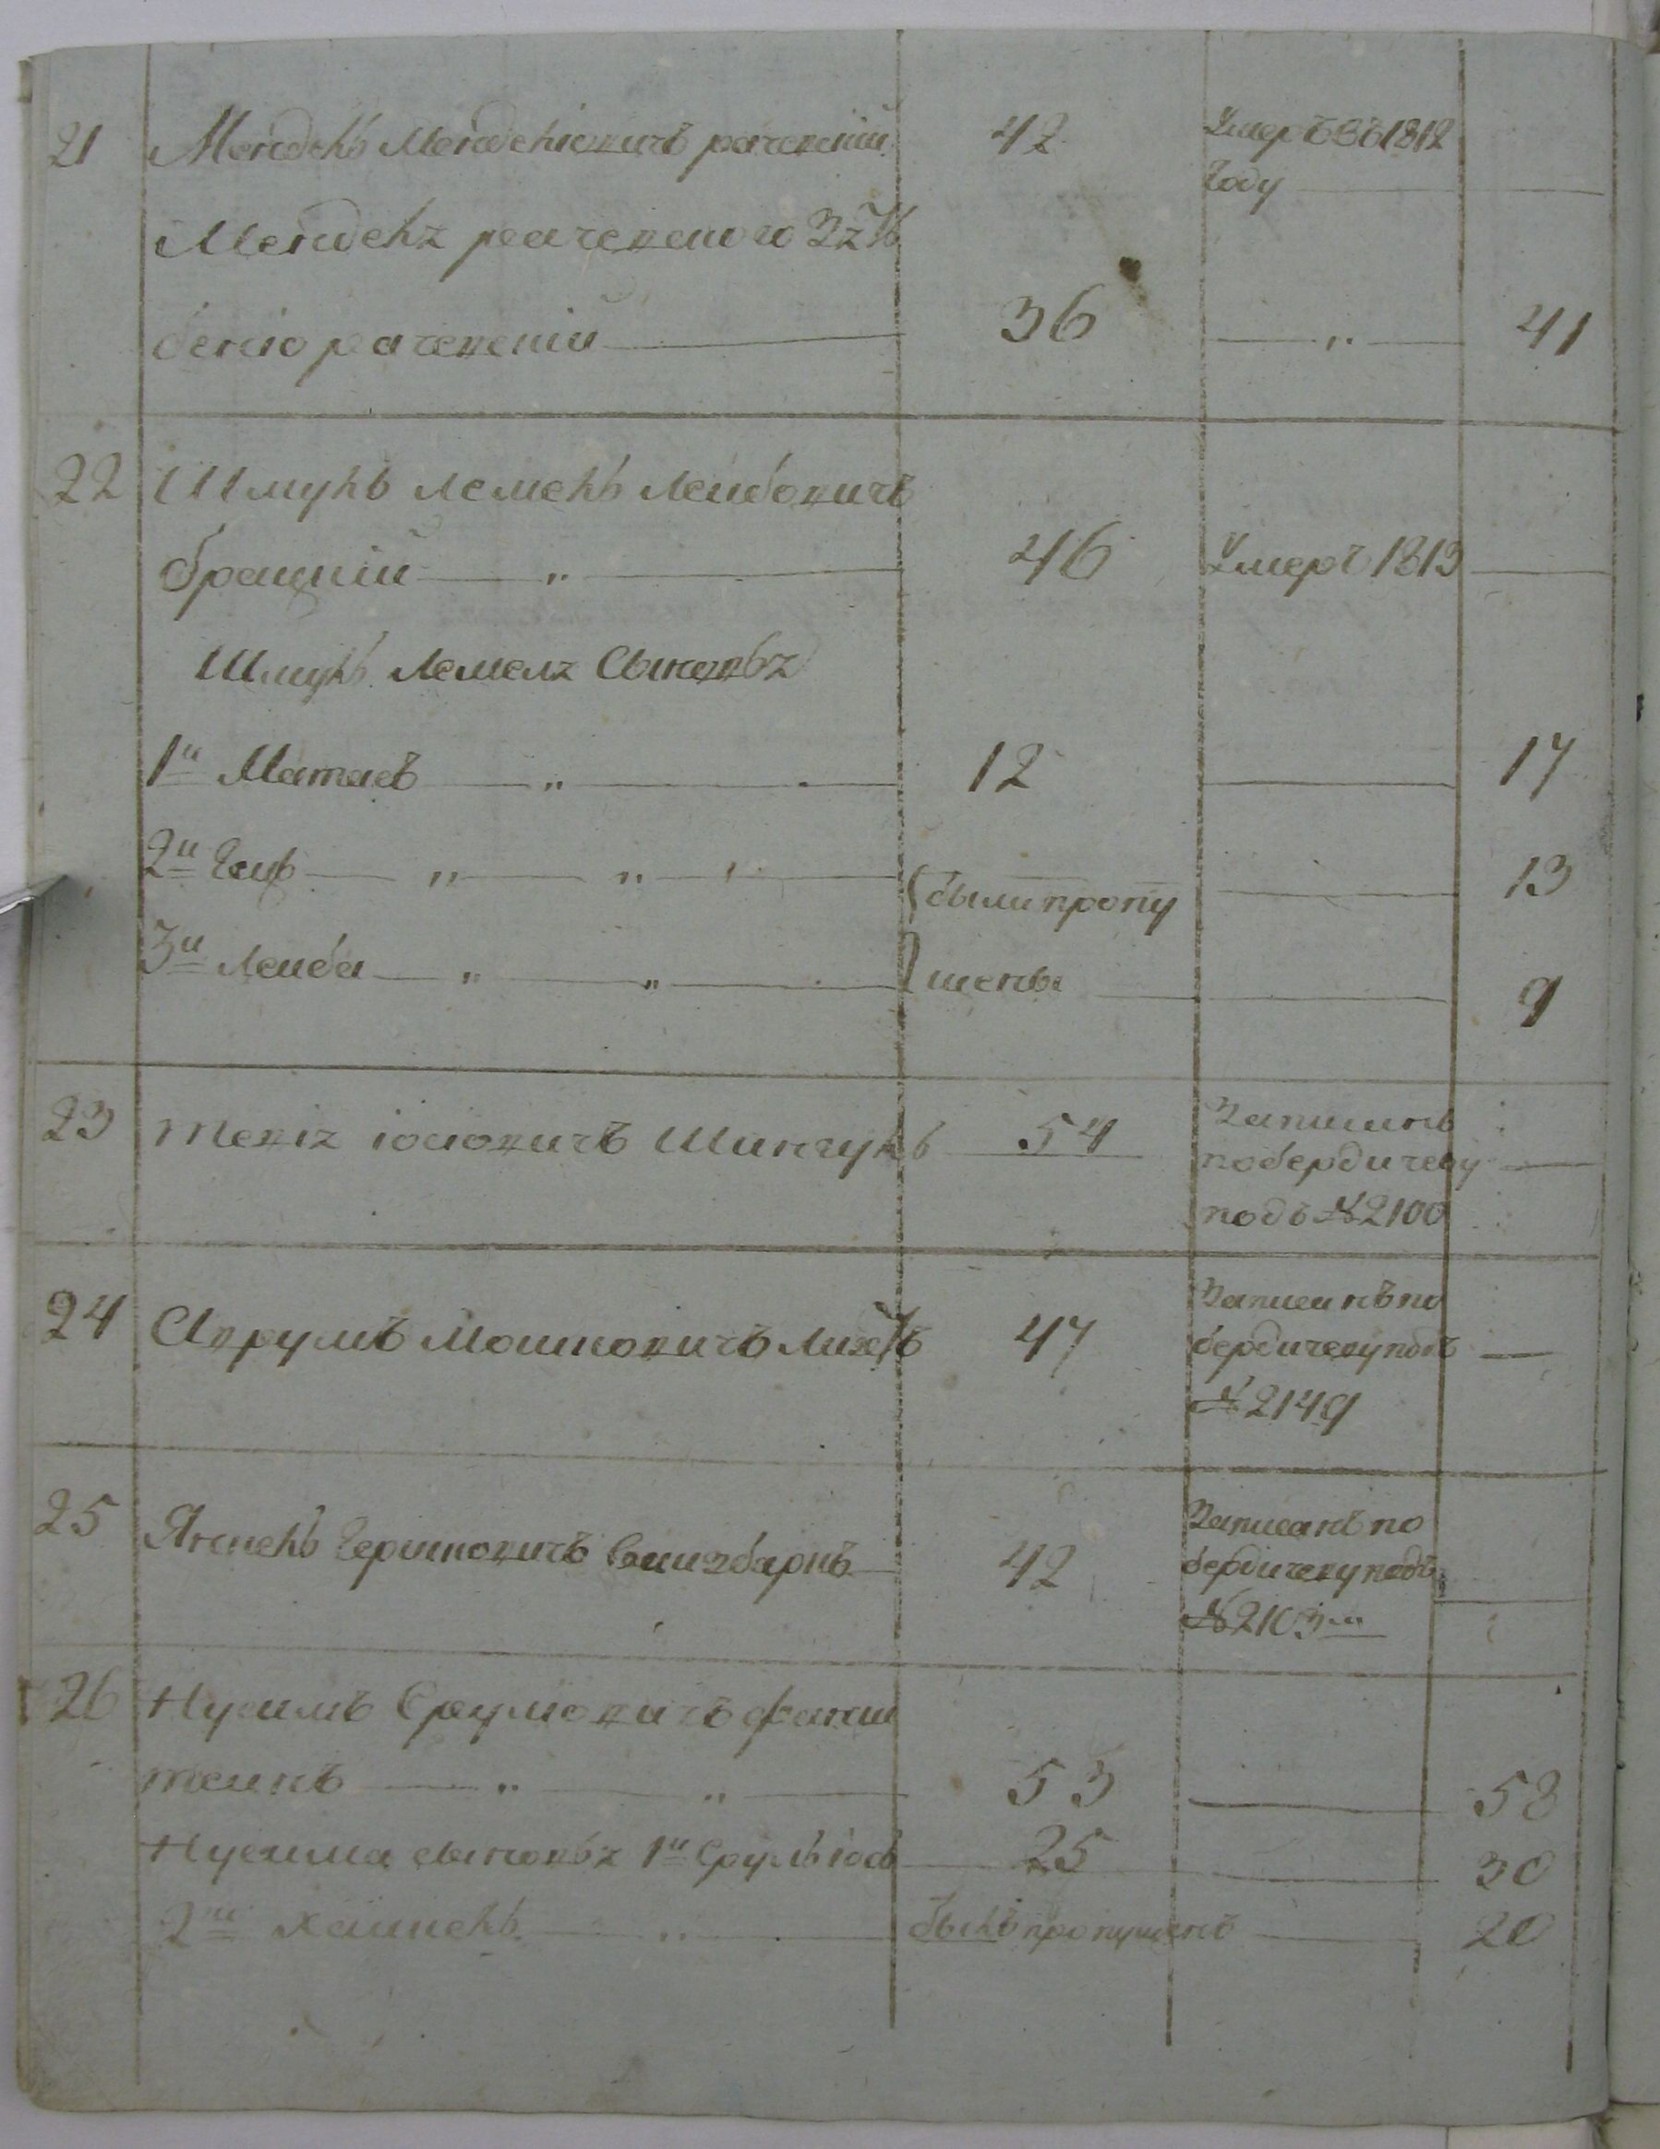 21 Мендель Менделіовичъ рачевскій 42 Умеръ въ 1812
году
Менделя рачевского Зять
бенію рачевскій 36 — „ — 41
22 Шмуль Лемель Лейбовичъ
брацкій — „ — 46 Умеръ 1813 —
Шмуль Лемеля Сыновья
1й Матвѣй — „ — 12 — 17
2й Гецъ — „ — „ — были пропу — 13
3й Лейба — „ — „ — щены — 9
23 Тевія іосіовичъ Шинчукъ 54 Записанъ
по бердичеву —
подъ №2100
24 Аврумъ Мошковичъ 47 Записанъ по
бердичеву подъ —
№2149
25 Янкель Гершковичъ 42 Записанъ по
бердичеву подъ
№2103м
26 Нусимъ Сруліовичъ фанш
теинъ — „ — „ — 53 — 58
Нусима сыновья 1й Сруль іось — 25 — 30
2й Хаимель — „ — былъ пропущенъ — 20